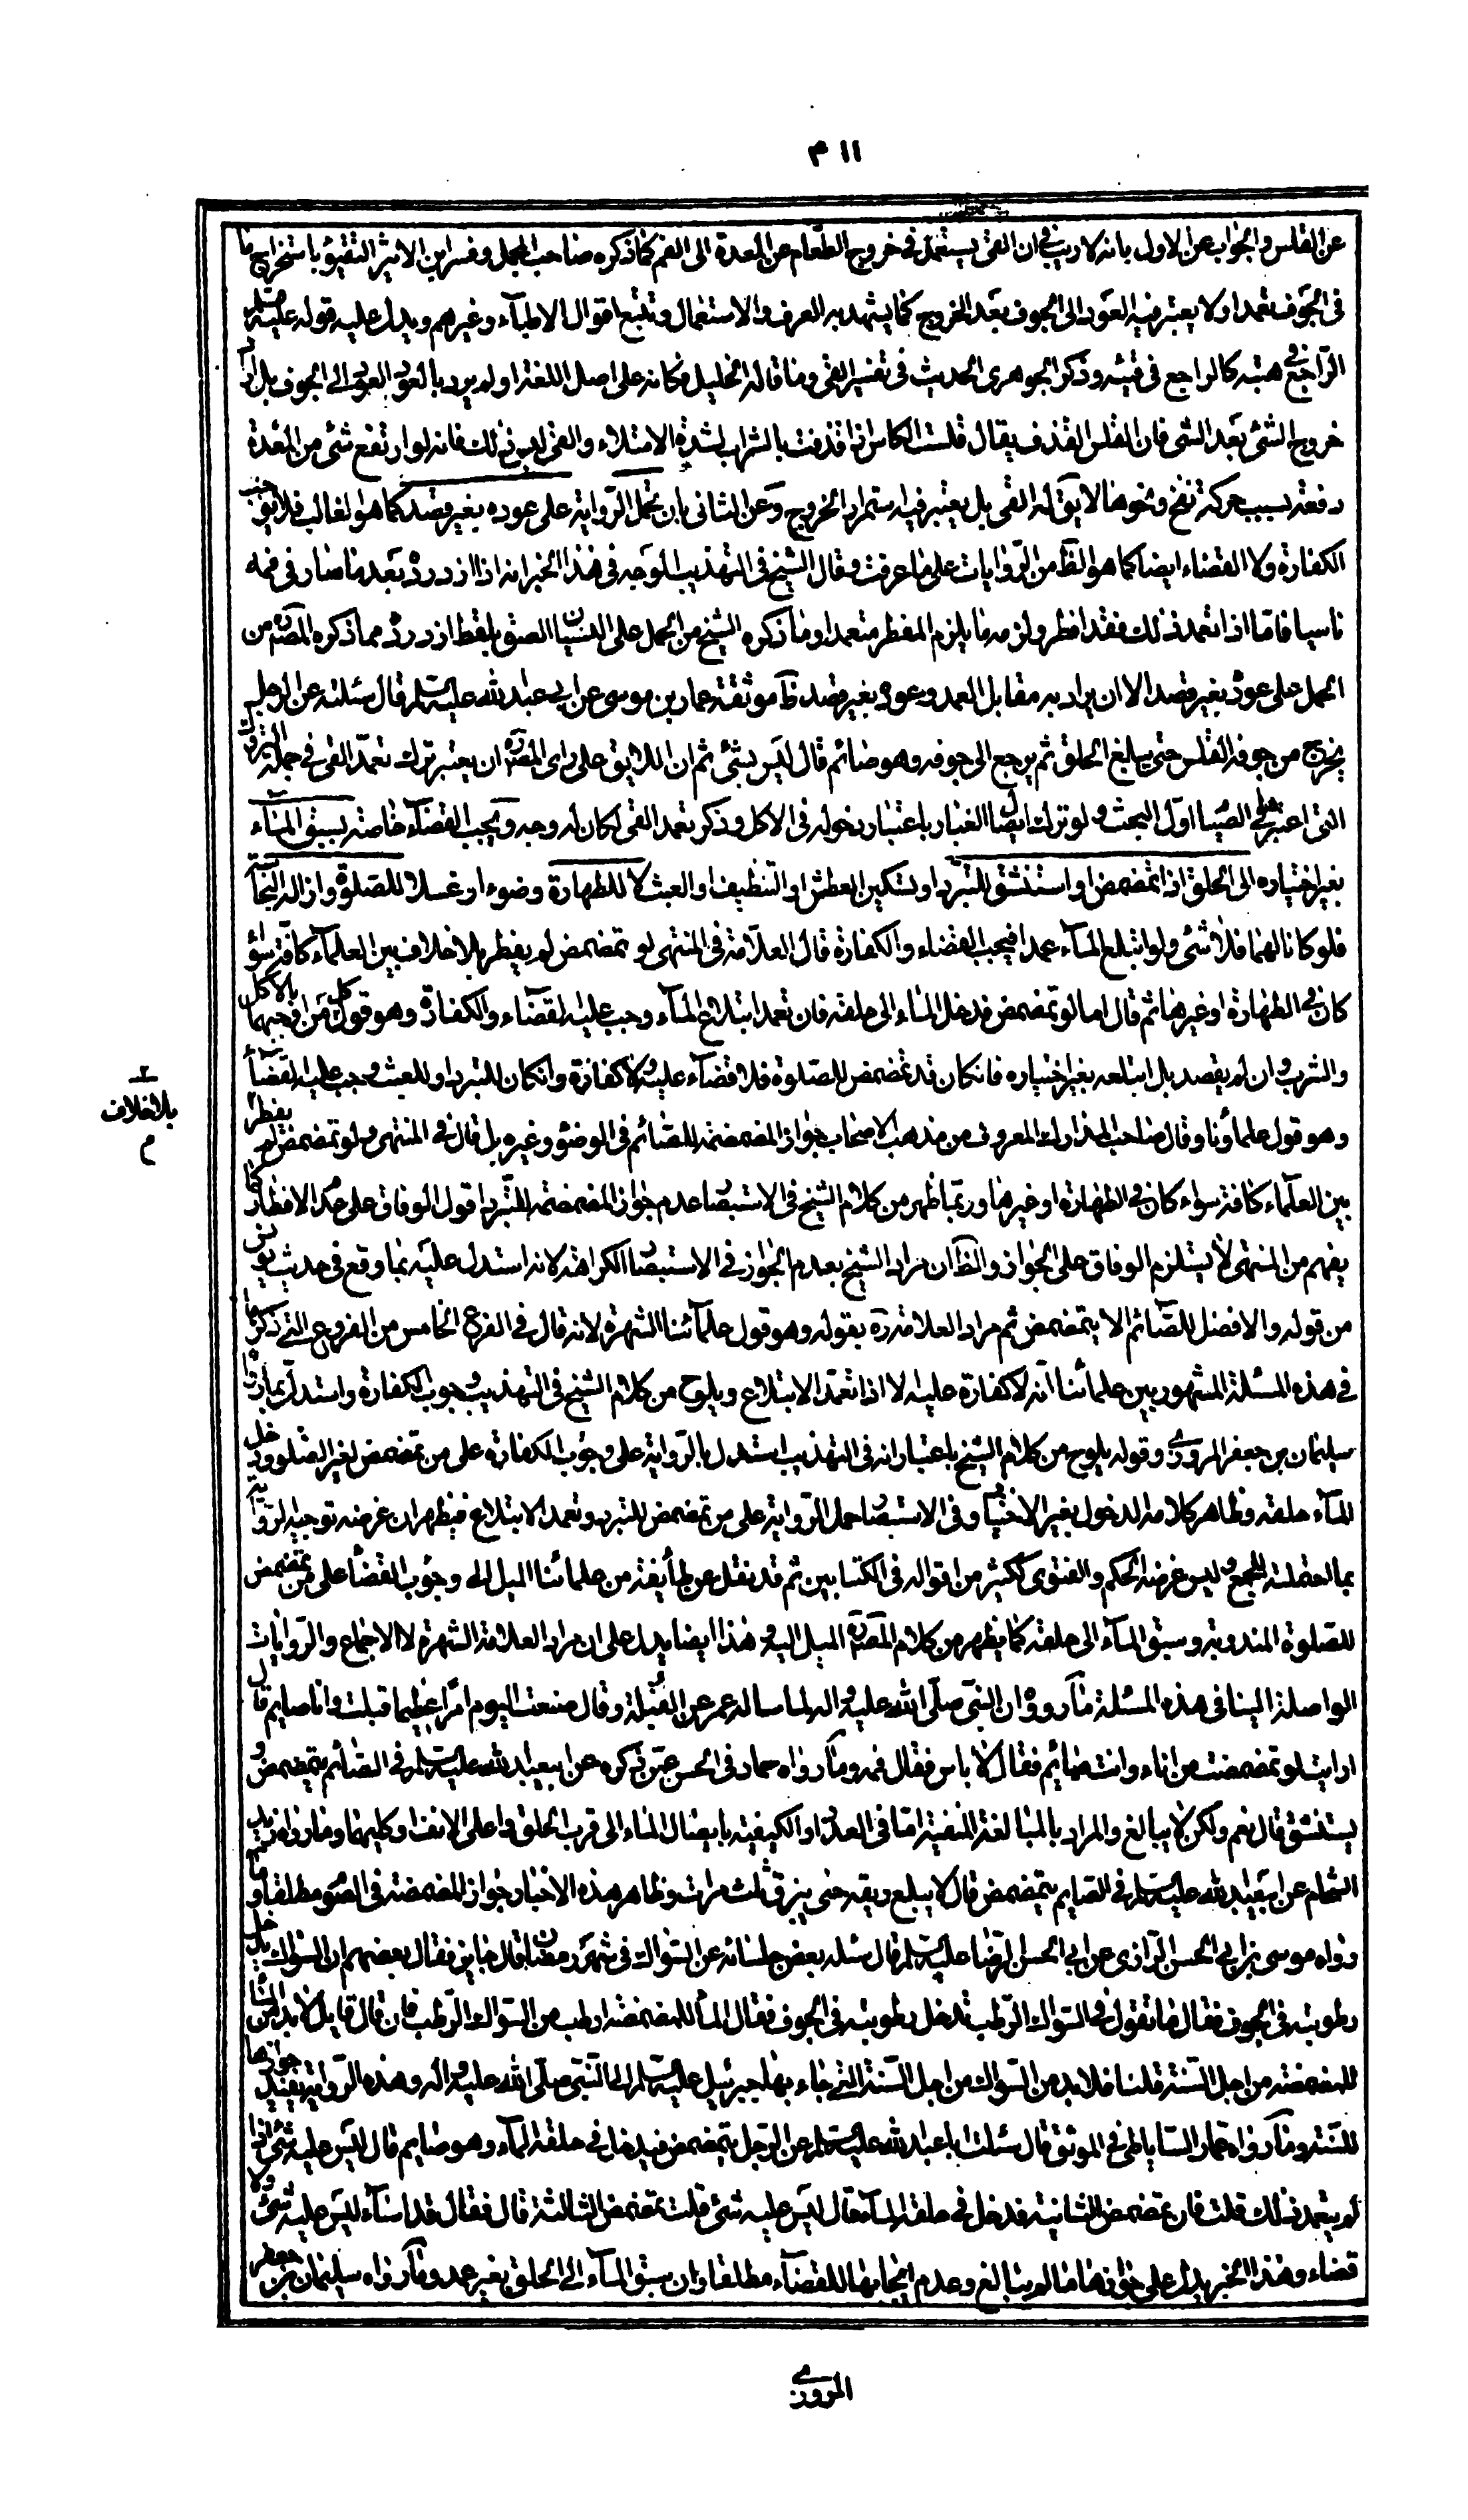 ٤١١
عن القلس والجواب عن الاول بانه لا ريب في ان القئ يستعمل في خروج الطعام من المعدة الى الفم كما ذكره صاحب المجمل وفسر ابن الاثير التقيؤ باستخراج ما
في الجوف تعمدا ولا يعتبر فيه العود الى الجوف بعد الخروج كما يشهد به العرف والاستعمال وتتبع اقوال الاطباء وغيرهم ويدل عليه قوله عليه السلم
الراجع في هبته كالراجع في قيئه وذكر الجوهرى الحديث في تفسير القئ وما قاله الخليل فكانه على اصل اللغة او لم يرد بالعود العود الى الجوف بل
خروج الشئ بعد الشئ فان القلس القذف يقال قلست الكاس اذا قذفت بالشراب لشدة الامتلاء والقئ ليس كذلك فانه لو ارتفع شئ من المعدة
دفعة بسبب حركة نفخ ونحوها لا يق له القئ بل يعتبر فيه استمرار الخروج وعن الثانى بان تحمل الرواية على عوده بغير قصد كما هو الغالب فلا يوجب
الكفارة ولا القضاء ايضا كما هو الظ من الروايات على ما عرفت وقال الشيخ في التهذيب الوجه في هذا الخبر انه اذا ازدرده بعد ما صار في فمه
ناسيا فاما اذا تعمد ذلك فقد افطر ولزمه ما يلزم المفطر متعمدا وما ذكره الشيخ من الحمل على النسيان الصق بلفظ ازدرده مما ذكره المصره من
الحمل على عوده بغير قصد الا ان يراد به مقابل العمد وعوده بغير قصد ظ موثقة عمار بن موسى عن ابي عبد الله عليه السلم قال سئلته عن الرجل
يخرج من جوفه القلس حتى يبلغ الحلق ثم يرجع الى جوفه وهو صائم قال ليس بشئ ثم ان اللايق على راى المصره ان يعتبر ترك تعمد القئ في جملة التروك
التى اعتبرها في الصيام اول البحث ولو ترك ايصال الغبار باعتبار دخوله في الاكل وذكر تعمد القئ لكان له وجه ويجب القضاء خاصة بسبق الماء
بغير اختياره الى الحلق اذا تمضمض او استنشق للتبرد او لتسكين العطش او التنظيف او العبث لا للطهارة وضوء او غسلا للصلوة وازالة النجاسة
فلو كانا لهما فلا شئ ولو ابتلع الماء عمدا فيجب القضاء والكفارة قال العلامة في المنتهى لو تمضمض لم يفطر بلا خلاف بين العلماء كافة سواء
كان في الطهارة او غيرها ثم قال اما لو تمضمض فدخل الماء الى حلقه فان تعمد ابتلاع الماء وجب عليه القضاء والكفارة وهو قول كل من اوجبهما بالاكل
والشرب وان لم يقصد بل ابتلعه بغير اختياره فان كان قد تمضمض للصلوة فلا قضاء عليه ولا كفارة وان كان للتبرد او للعبث وجب عليه القضاء
وهو قول علماؤنا وقال صاحب المدارك المعروف من مذهب الاصحاب جواز المضمضة للصائم في الوضوء وغيره بل قال في المنتهى ولو تمضمض لم يفطر
بلا خلاف م
بين العلماء كافة سواء كان في الطهارة او غيرها وربما ظهر من كلام الشيخ في الاستبصار عدم جواز المضمضة للتبرد اقول الوفاق على عدم الافطار كما
يفهم من المنتهى لا يستلزم الوفاق على الجواز والظ ان مراد الشيخ بعدم الجواز في الاستبصار الكراهة لانه استدل عليه بما وقع في حديث يونس
من قوله والافضل للصائم الا يتمضمض ثم مراد العلامة ره بقوله وهو قول علمائنا الشهرة لانه قال في الفرع الخامس من الفروع التى ذكرها
في هذه المسئلة المشهور بين علمائنا انه لا كفارة عليه الا اذا تعمد الابتلاع ويلوح من كلام الشيخ في التهذيب وجوب الكفارة واستدل بما رواه
سليمان بن جعفر المروزى وقوله يلوح من كلام الشيخ باعتبار انه في التهذيب استدل بالرواية على وجوب الكفارة على من تمضمض لغير الصلوة ودخل
الماء حلقه وظاهر كلامه الدخول بغير الاختيار وفي الاستبصار حمل الرواية على من تمضمض للتبرد وتعمد الابتلاع فيظهر ان غرضه توجيه الرواية
بما احتملته للجمع وليس غرضه الحكم والفتوى ككثير من اقواله في الكتابين ثم قد نقل عن طائفة من علمائنا الميل الى وجوب القضاء على من تمضمض
للصلوة المندوبة وسبق الماء الى حلقه كما يظهر من كلام المصره الميل اليه وهذا ايضا يدل على ان مراد العلامة الشهرة لا الاجماع والروايات
الواصلة الينا في هذه المسئلة ما رووه ان النبى صلى الله عليه واله لما ساله عمر عن القبلة وقال صنعت اليوم امرا عظيما قبلت وانا صايم قال
ارايت لو تمضمضت من اناء وانت صايم فقال لا باس فقال فمه وما رواه حماد في الحسن عمن ذكره عن ابيعبد الله عليه السلم في الصائم يتمضمض و
يستنشق قال نعم ولكن لا يبالغ والمراد بالمبالغة المنفية اما في العدد او الكيفية بايصال الماء الى قرب الحلق واعلى الانف او كليهما وما رواه زيد
الشحام عن ابيعبد الله عليه السلم في الصايم يتمضمض قال لا يبلع ريقه حتى يبزق ثلث مرات وظاهر هذه الاخبار جواز المضمضة في الصوم مطلقا وما
رواه موسى بن ابي الحسن الرازى عن ابي الحسن الرضا عليه السلم قال سئله بعض جلسائه عن السواك في شهر رمضان قال جايز فقال بعضهم ان السواك يدخل
رطوبته في الجوف فقال ما تقول في السواك الرطب تدخل رطوبته في الجوف فقال الماء للمضمضة ارطب من السواك الرطب فان قال قايل لا بد من الماء
للمضمضة من اجل السنة قلنا فلا بد من السواك من اجل السنة التى جاء بها جبرئيل عليه السلم الى النبى صلى الله عليه واله وهذه الرواية يفيد جوازها
للسنة وما رواه عمار الساباطى في الموثق قال سئلت ابا عبد الله عليه السلم عن الرجل يتمضمض فيدخل في حلقه الماء وهو صايم قال ليس عليه شئ اذا
لم يتعمد ذلك قلت فان تمضمض الثانية فدخل في حلقه الماء قال ليس عليه شئ قلت تمضمض الثالثة قال فقال قد اساء ليس عليه شئ ولا
قضاء وهذا الخبر يدل على جوازها ما لم يبالغ وعدم ايجابها للقضاء مطلقا وان سبق الماء الى الحلق بغير عمد وما رواه سليمان بن جعفر
المروزى